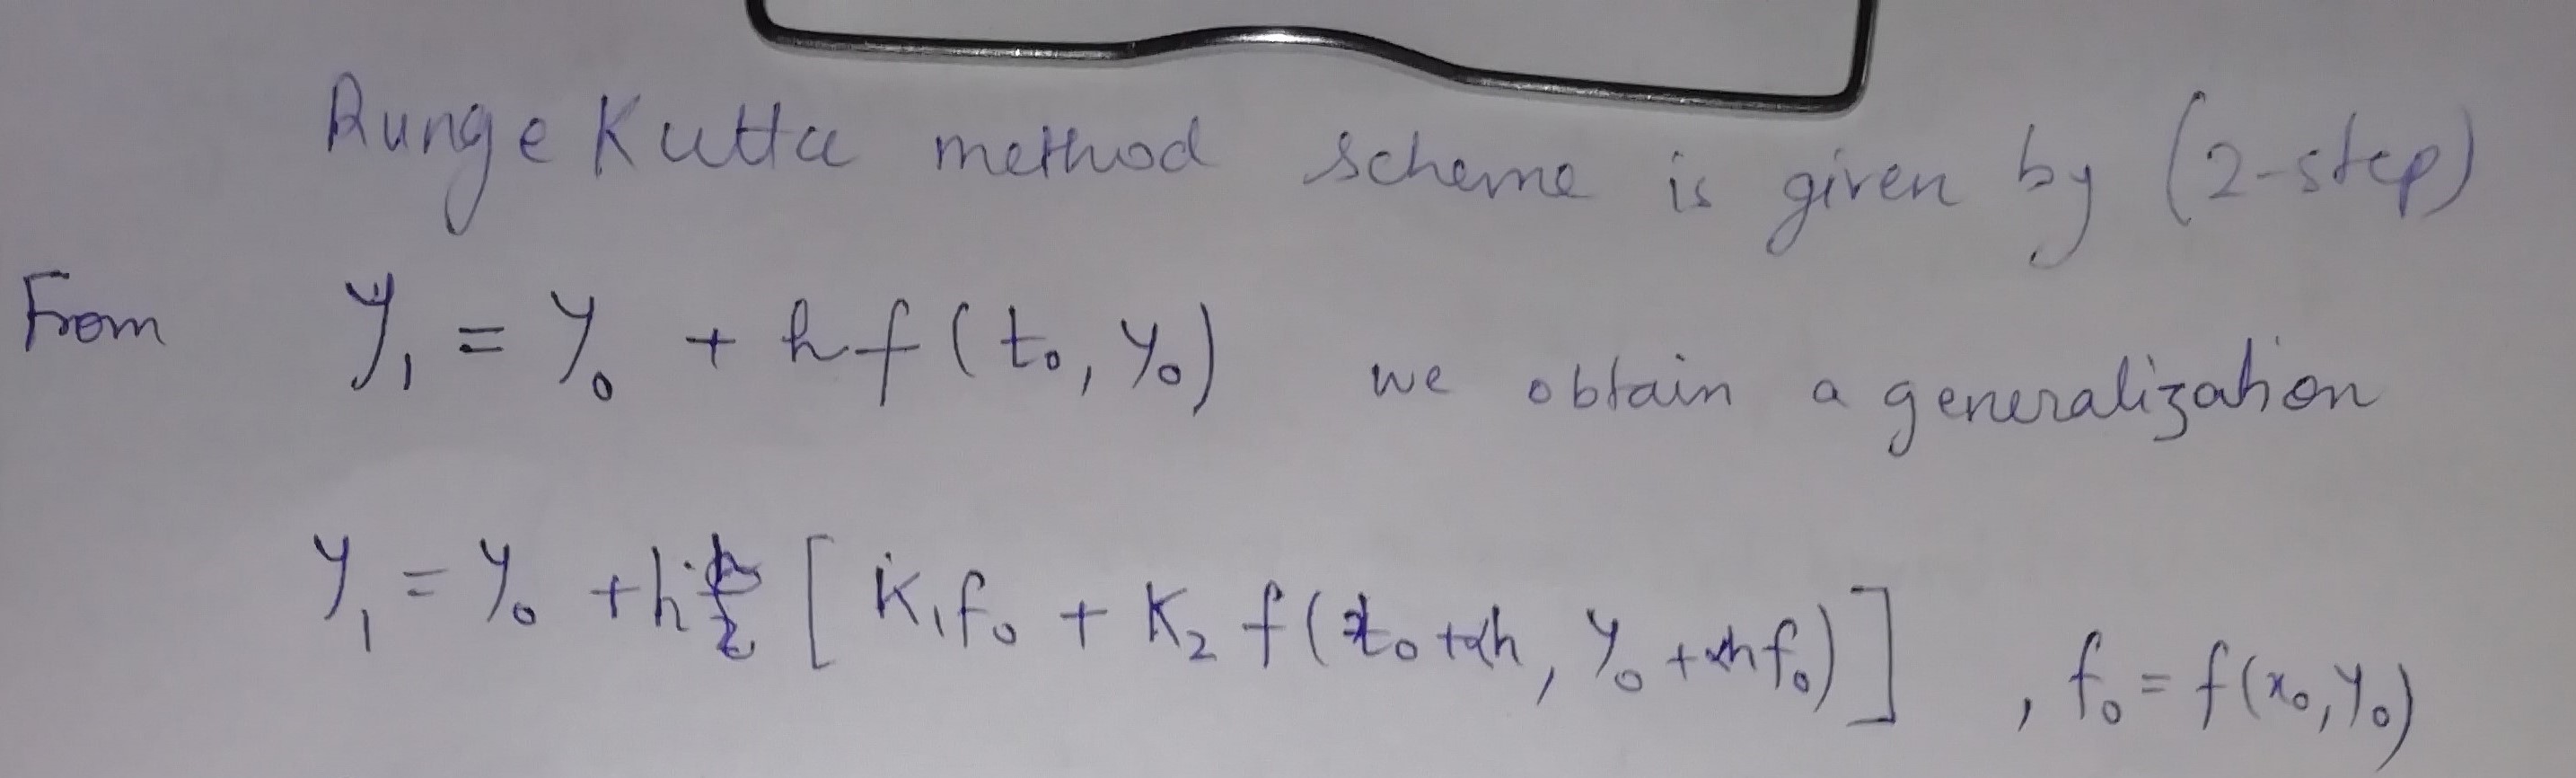 Runge Kutta method scheme is given by (2-step)
From y₁ = y₀ + hf(t₀, y₀) we obtain a generalization
y₁ = y₀ + h [K₁f₀ + K₂ f(t₀+αh, y₀+αhf₀)] , f₀ = f(x₀, y₀)